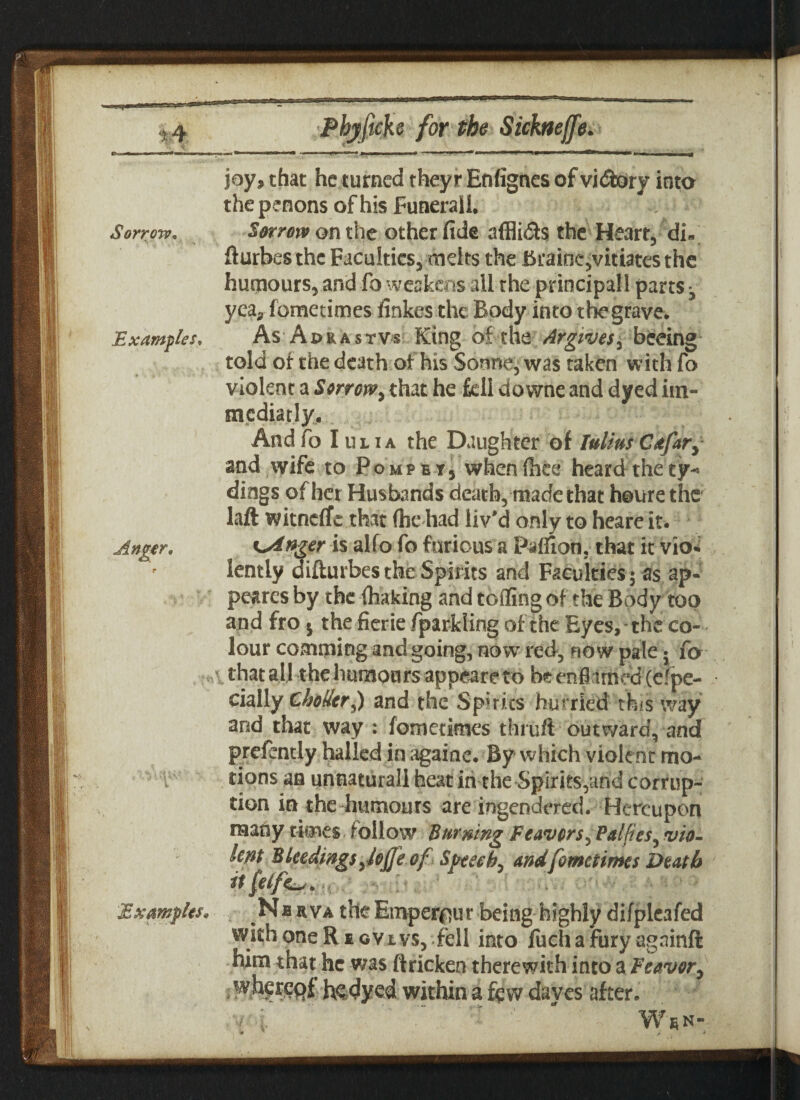 54 Phyſicke for the Sickneſſe.
joy, that he turned theyr Enſignes of victory into
the penons of his Funerall.
Sorrow. Sorrow on the other ſide afflicts the Heart, di-
ſturbes the Faculties, melts the Braine, vitiates the
humours, and ſo weakens all the principall parts;
yea, ſometimes ſinkes the Body into the grave.
Examples. As ADRASTVS King of the Argives, beeing
told of the death of his Sonne, was taken with ſo
violent a Sorrow, that he fell downe and dyed im-
mediatly.
And ſo IULIA the Daughter of Iulius Cæſar,
and wife to POMPEY, when ſhee heard the ty-
dings of her Husbands death, made that houre the
laſt witneſſe that ſhe had liv'd only to heare it.
Anger. Anger is alſo ſo furious a Paſſion, that it vio-
lently diſturbes the Spirits and Faculties; as ap-
peares by the ſhaking and toſſing of the Body too
and fro; the fierie ſparkling of the Eyes, the co-
lour comming and going, now red, now pale; ſo
that all the humours appeare to be enflamed (eſpe-
cially Choller,) and the Spirits hurried this way
and that way: ſometimes thruſt outward, and
preſently halled in againe. By which violent mo-
tions an unnaturall heat in the Spirits, and corrup-
tion in the humours are ingendered. Hereupon
many times follow Burning Feavors, Palſies, vio-
lent Bleedings, loſſe of Speech, and ſometimes Death
it ſelfe.
Examples. NERVA the Emperour being highly diſpleaſed
with one REGVLVS, fell into ſuch a fury againſt
him that he was ſtricken therewith into a Feavor,
whereof he dyed within a few dayes after.
WEN-